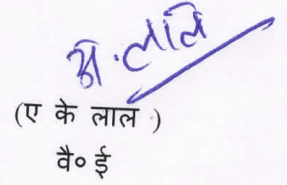 अ. लाल
(ए के लाल )
वै० ई